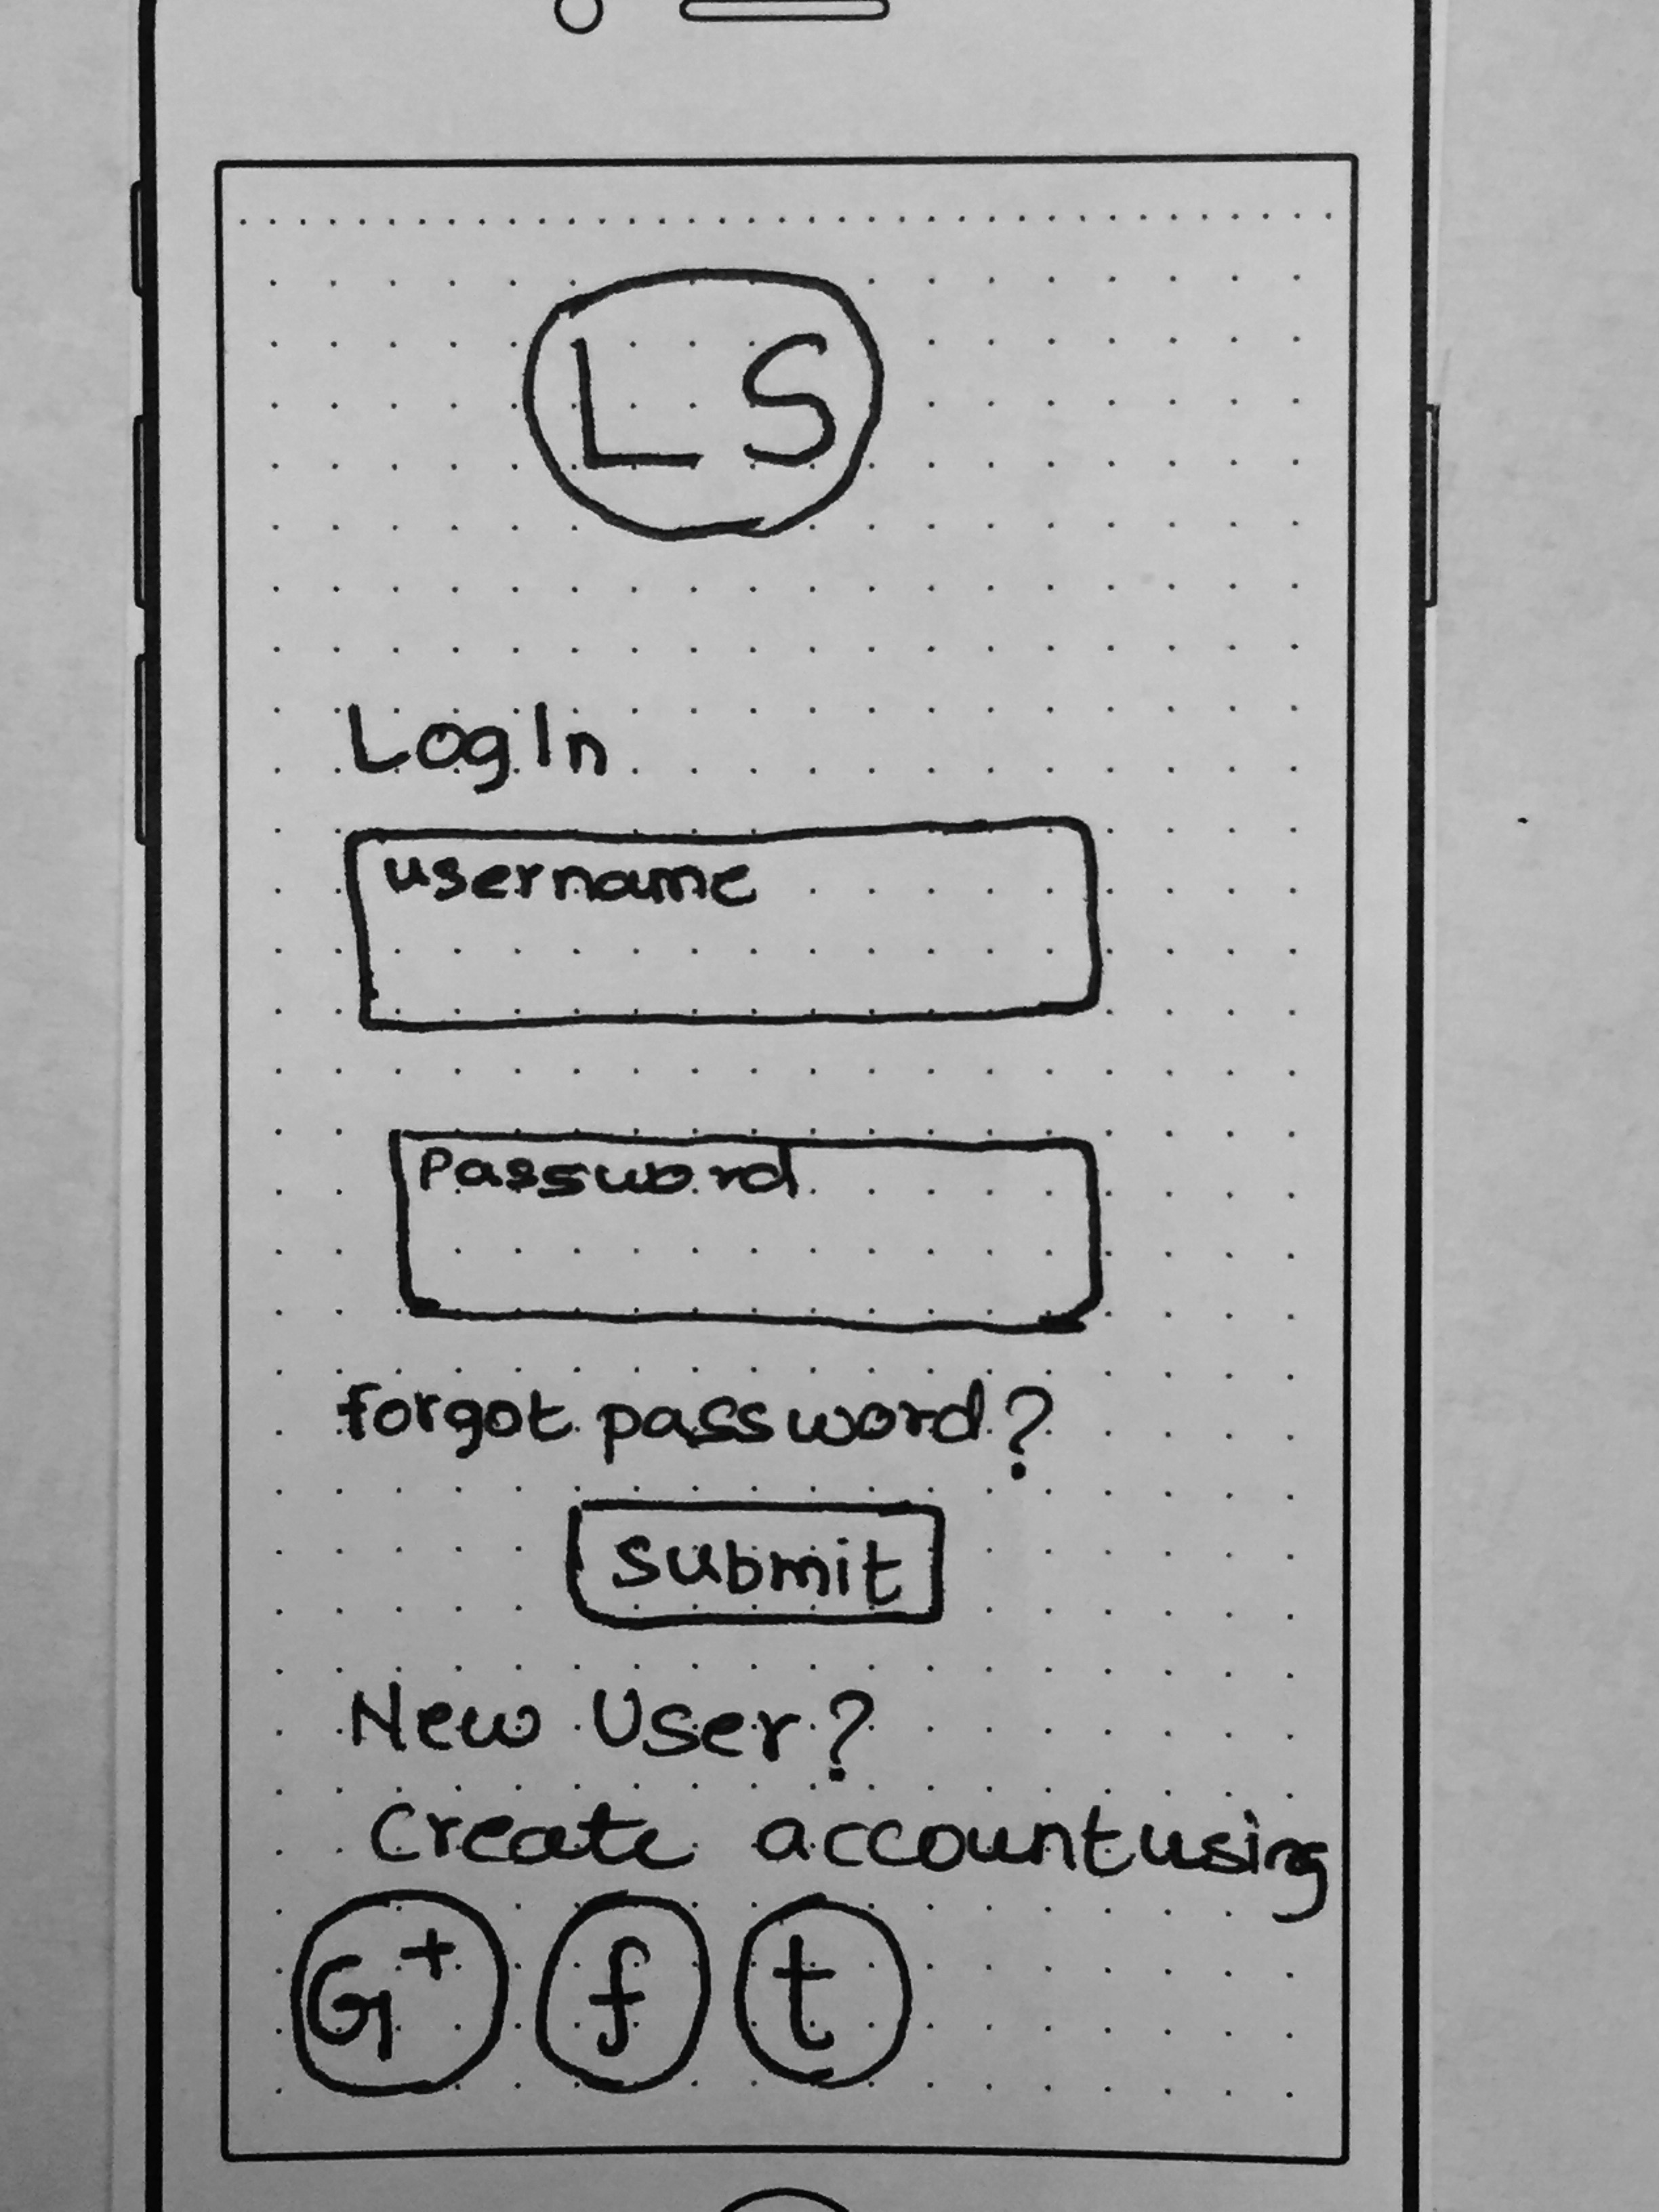 LS
LogIn
username
Password
forgot password?
submit
New User?
Create account using
G+ f t